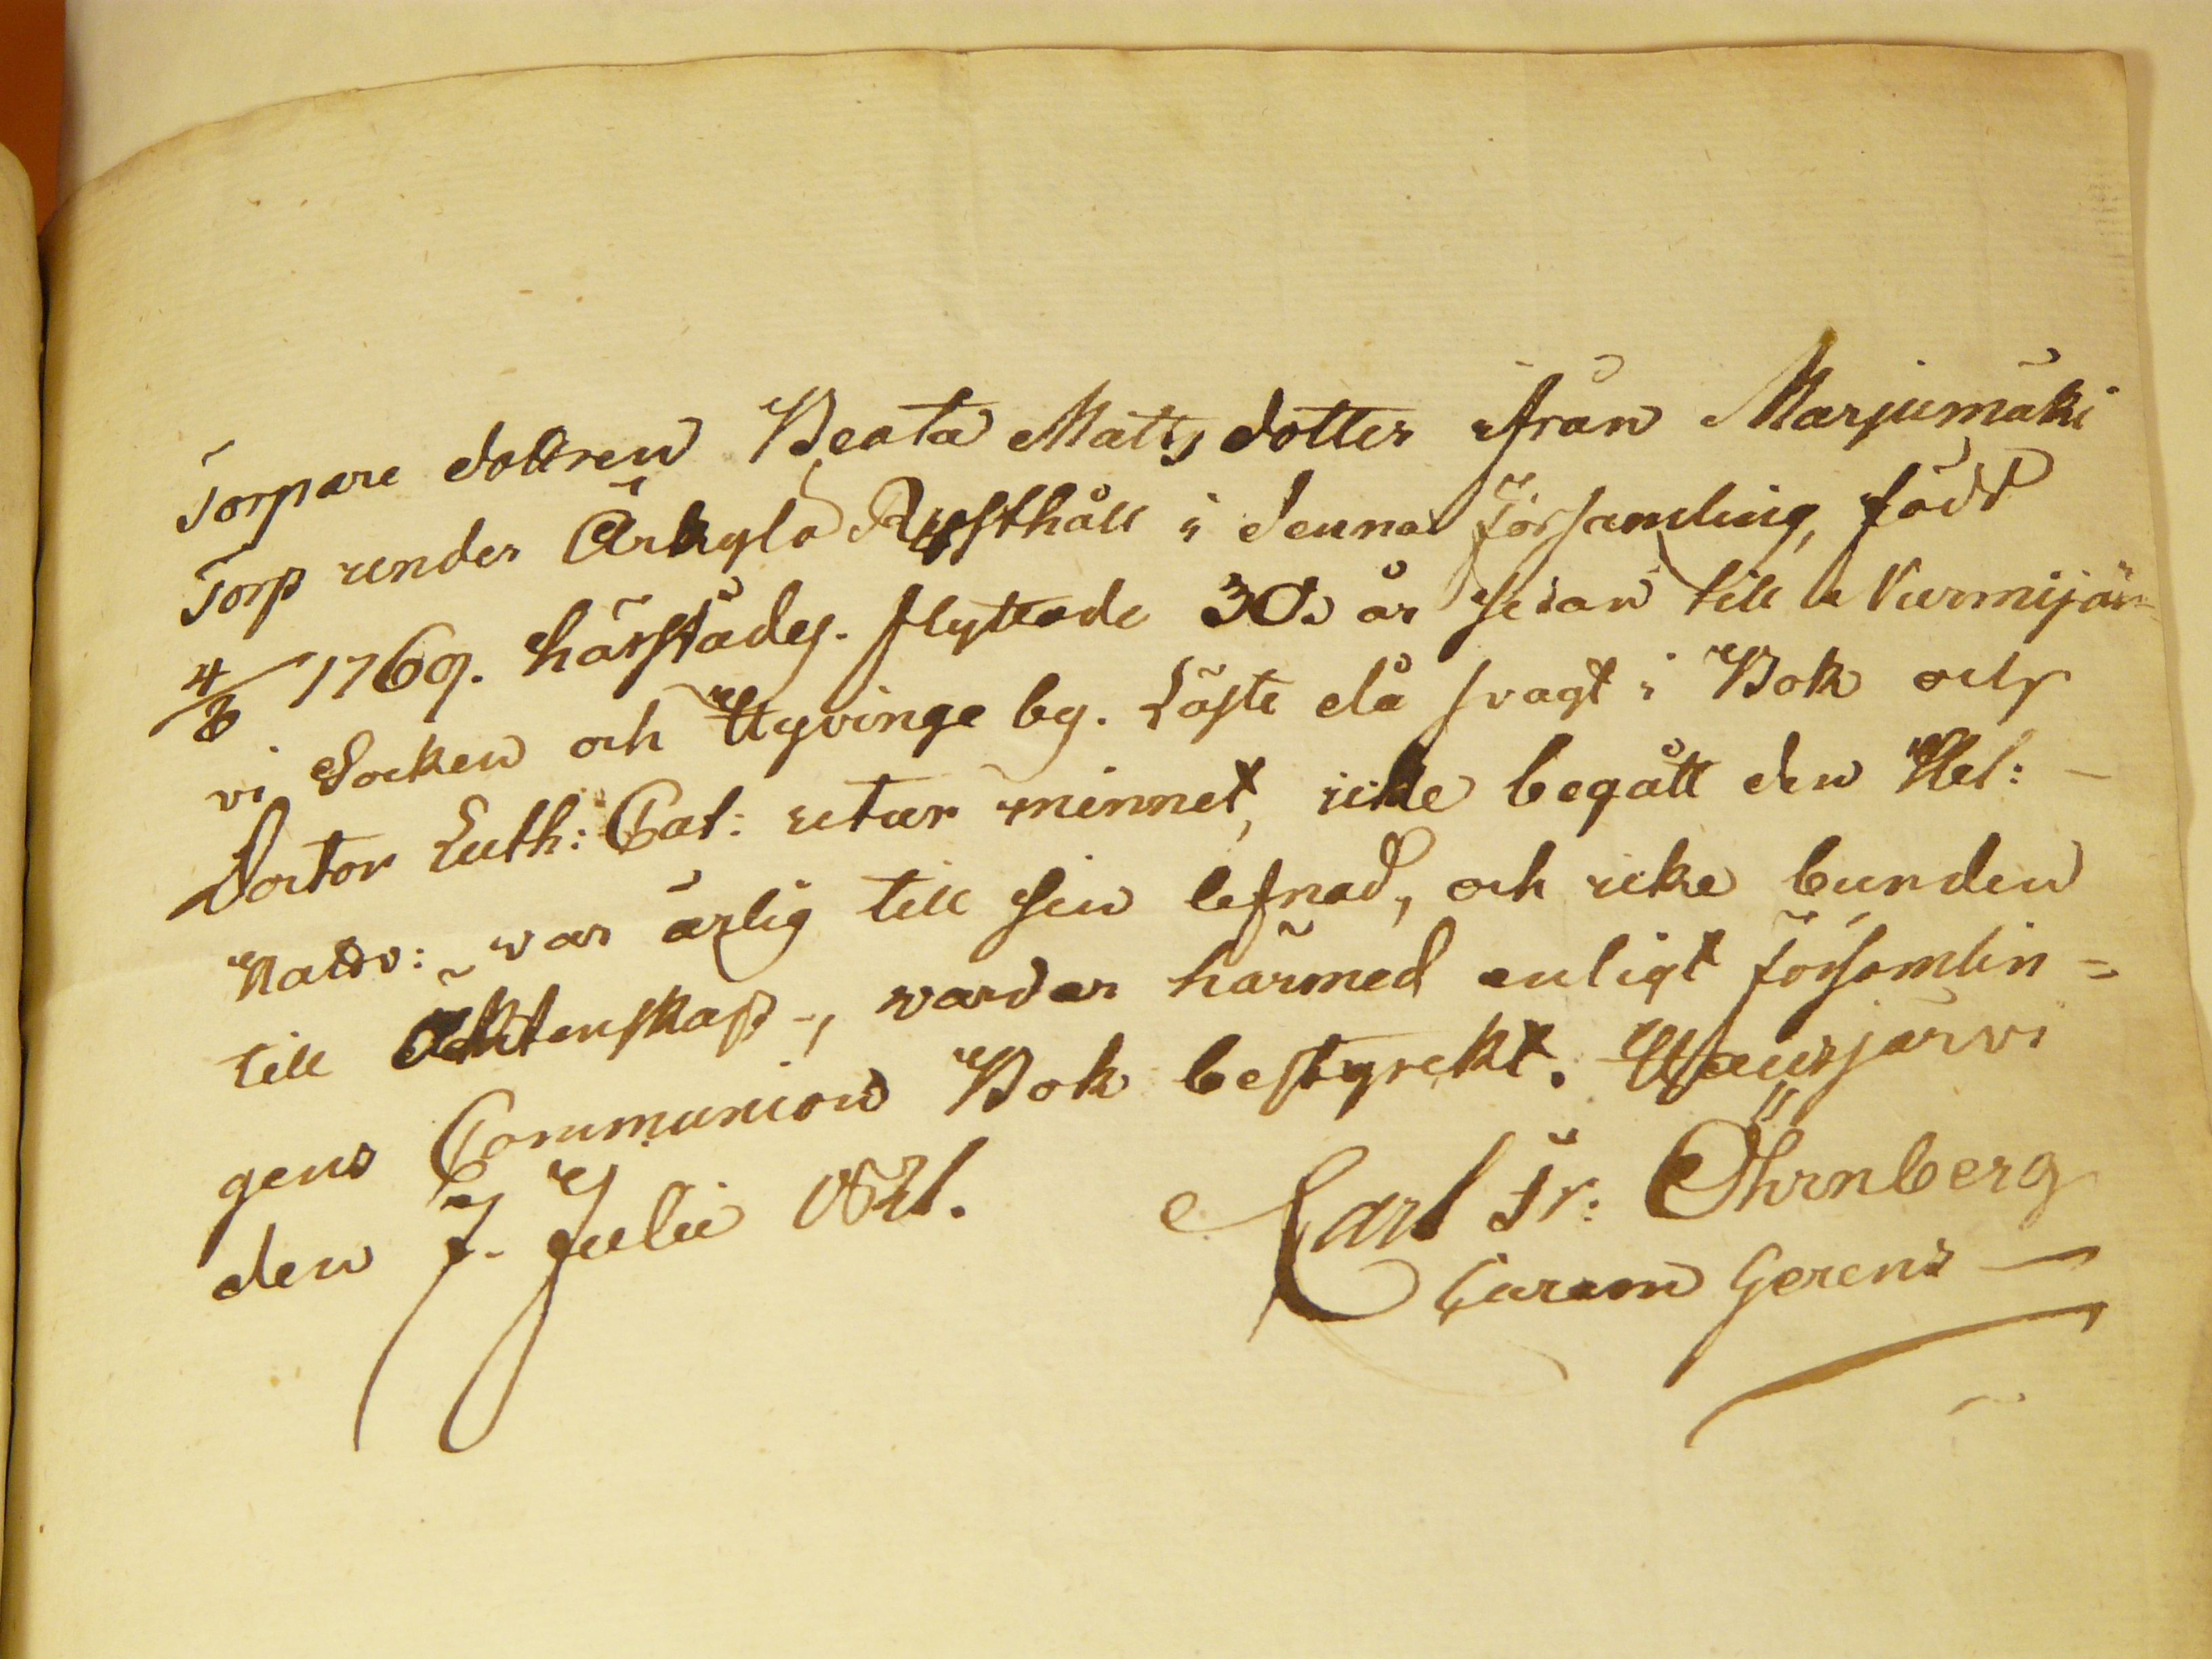 Torpare dottren Beata Matts dotter ifrån Marjumäki
Torp under Ärkylä Rusthåll i denna Församling, född
4/8 1769. härstädes. flyttade 30. år sedan till Nurmijär-
vi Socken och Hyvinge by. Läste då svagt i Bok och
Doctor Luth: Cat: utur minnet, icke begått den Hel:
Nattv: war ärlig till sin lefnad, och icke bunden
till Äktenskap, warder härmed enligt församlin=
gens Communion Bok bestyrckt. Hausjärvi
den 7. Julii 1821. Carl Fr: Öhrnberg
Curam Gerens